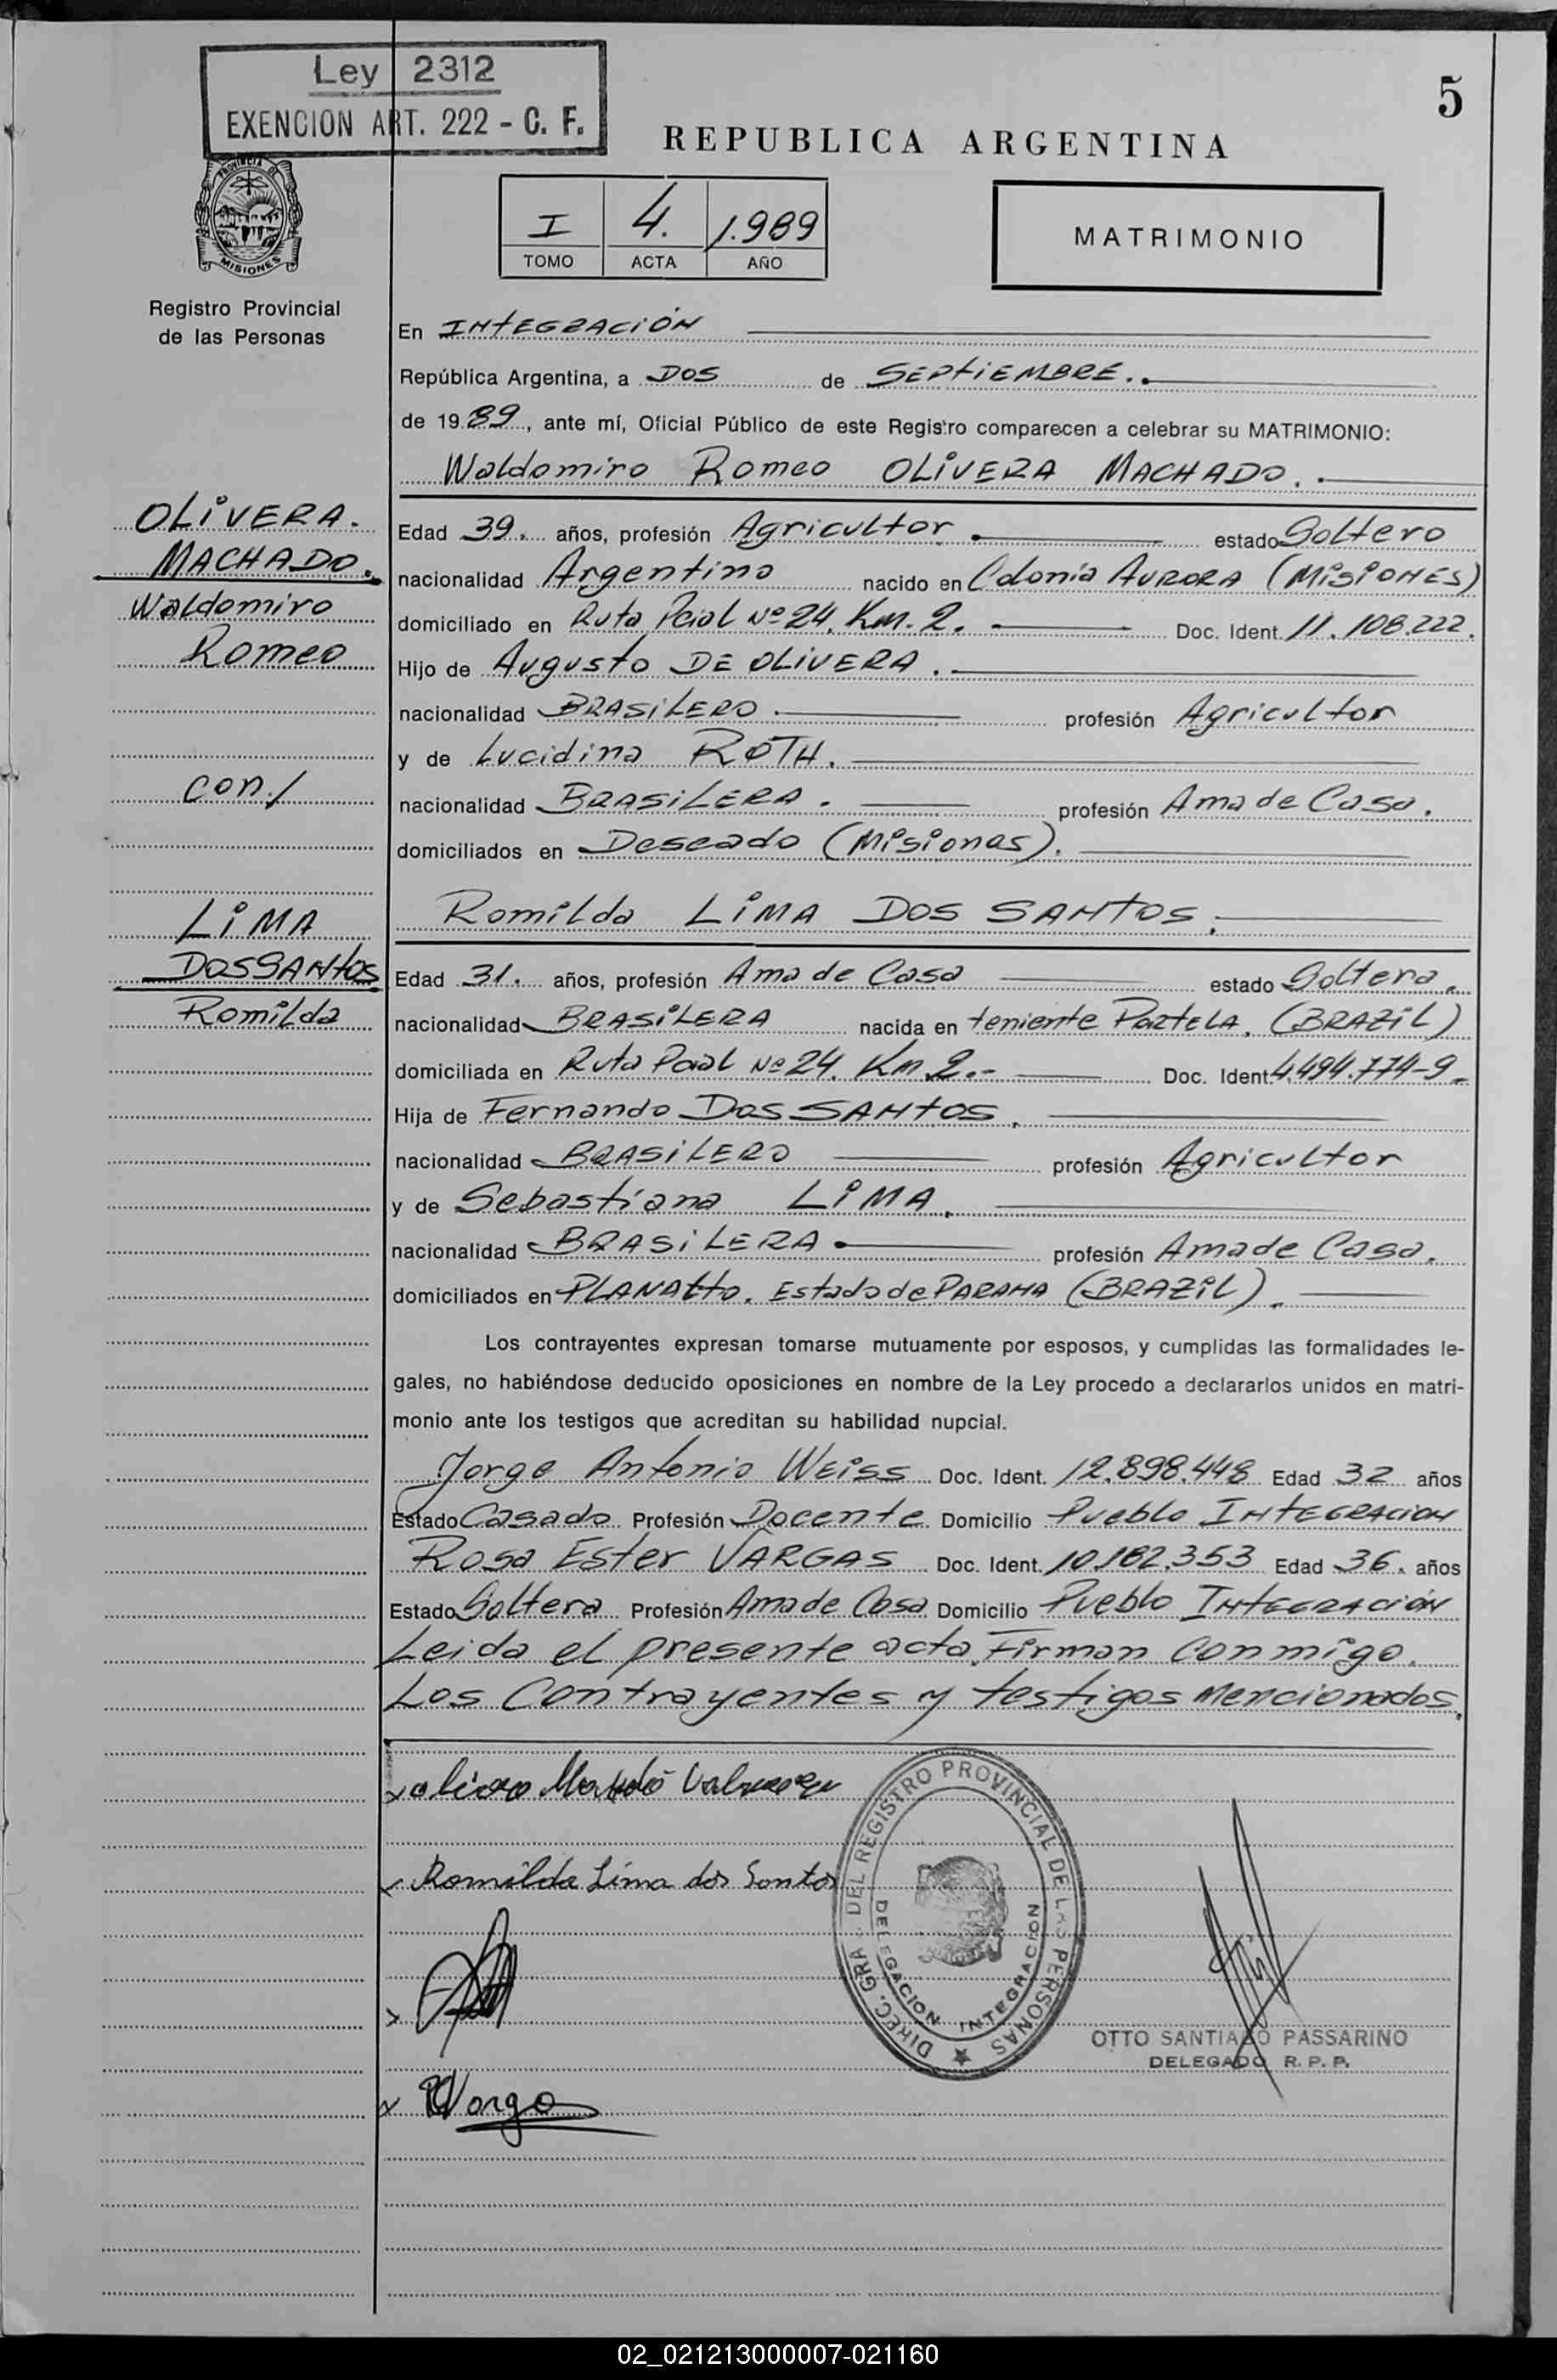 Ley 2312
EXENCION ART. 222 - C. F.
5
REPUBLICA ARGENTINA
PROVINCIA DE MISIONES
Registro Provincial
de las Personas
I 4. 1.989
TOMO ACTA AÑO
MATRIMONIO
En INTEGRACIÓN
República Argentina, a DOS de SEPTIEMBRE.
de 19 89, ante mí, Oficial Público de este Registro comparecen a celebrar su MATRIMONIO:
Waldomiro Romeo OLIVERA MACHADO.
OLIVERA.
MACHADO.
Waldomiro
Romeo
con/
LIMA
DOS SANTOS
Romilda
Edad 39. años, profesión Agricultor estado Soltero
nacionalidad Argentino nacido en Colonia AURORA (MISIONES)
domiciliado en Ruta Pcial Nº 24. Km. 2. Doc. Ident. 11.108.222.
Hijo de Augusto DE OLIVERA.
nacionalidad BRASILERO profesión Agricultor
y de Lucidina ROTH.
nacionalidad BRASILERA. profesión Ama de Casa.
domiciliados en Deseado (Misiones).
Romilda LIMA DOS SANTOS.
Edad 31. años, profesión Ama de Casa estado Soltera.
nacionalidad BRASILERA nacida en teniente PORTELA. (BRAZIL)
domiciliada en Ruta Pcial Nº 24. Km 2.- Doc. Ident. 4.494.774-9-
Hija de Fernando DOS SANTOS.
nacionalidad BRASILERO profesión Agricultor
y de Sebastiana LIMA.
nacionalidad BRASILERA. profesión Ama de Casa.
domiciliados en PLANALTO. Estado de PARANA (BRAZIL).
Los contrayentes expresan tomarse mutuamente por esposos, y cumplidas las formalidades le-
gales, no habiéndose deducido oposiciones en nombre de la Ley procedo a declararlos unidos en matri-
monio ante los testigos que acreditan su habilidad nupcial.
Jorge Antonio WEISS Doc. Ident. 12.898.448 Edad 32 años
Estado Casado Profesión Docente Domicilio Pueblo INTEGRACION
Rosa Ester VARGAS Doc. Ident. 10.182.353 Edad 36. años
Estado Soltera Profesión Ama de Casa Domicilio Pueblo INTEGRACIÓN
Leida el presente acta, Firman Conmigo.
Los Contrayentes y testigos Mencionados.
Romilda Lima dos Santos
DIREC. GRAL. DEL REGISTRO PROVINCIAL DE LAS PERSONAS
DELEGACION INTEGRACION
OTTO SANTIAGO PASSARINO
DELEGADO R. P. P.
02_021213000007-021160